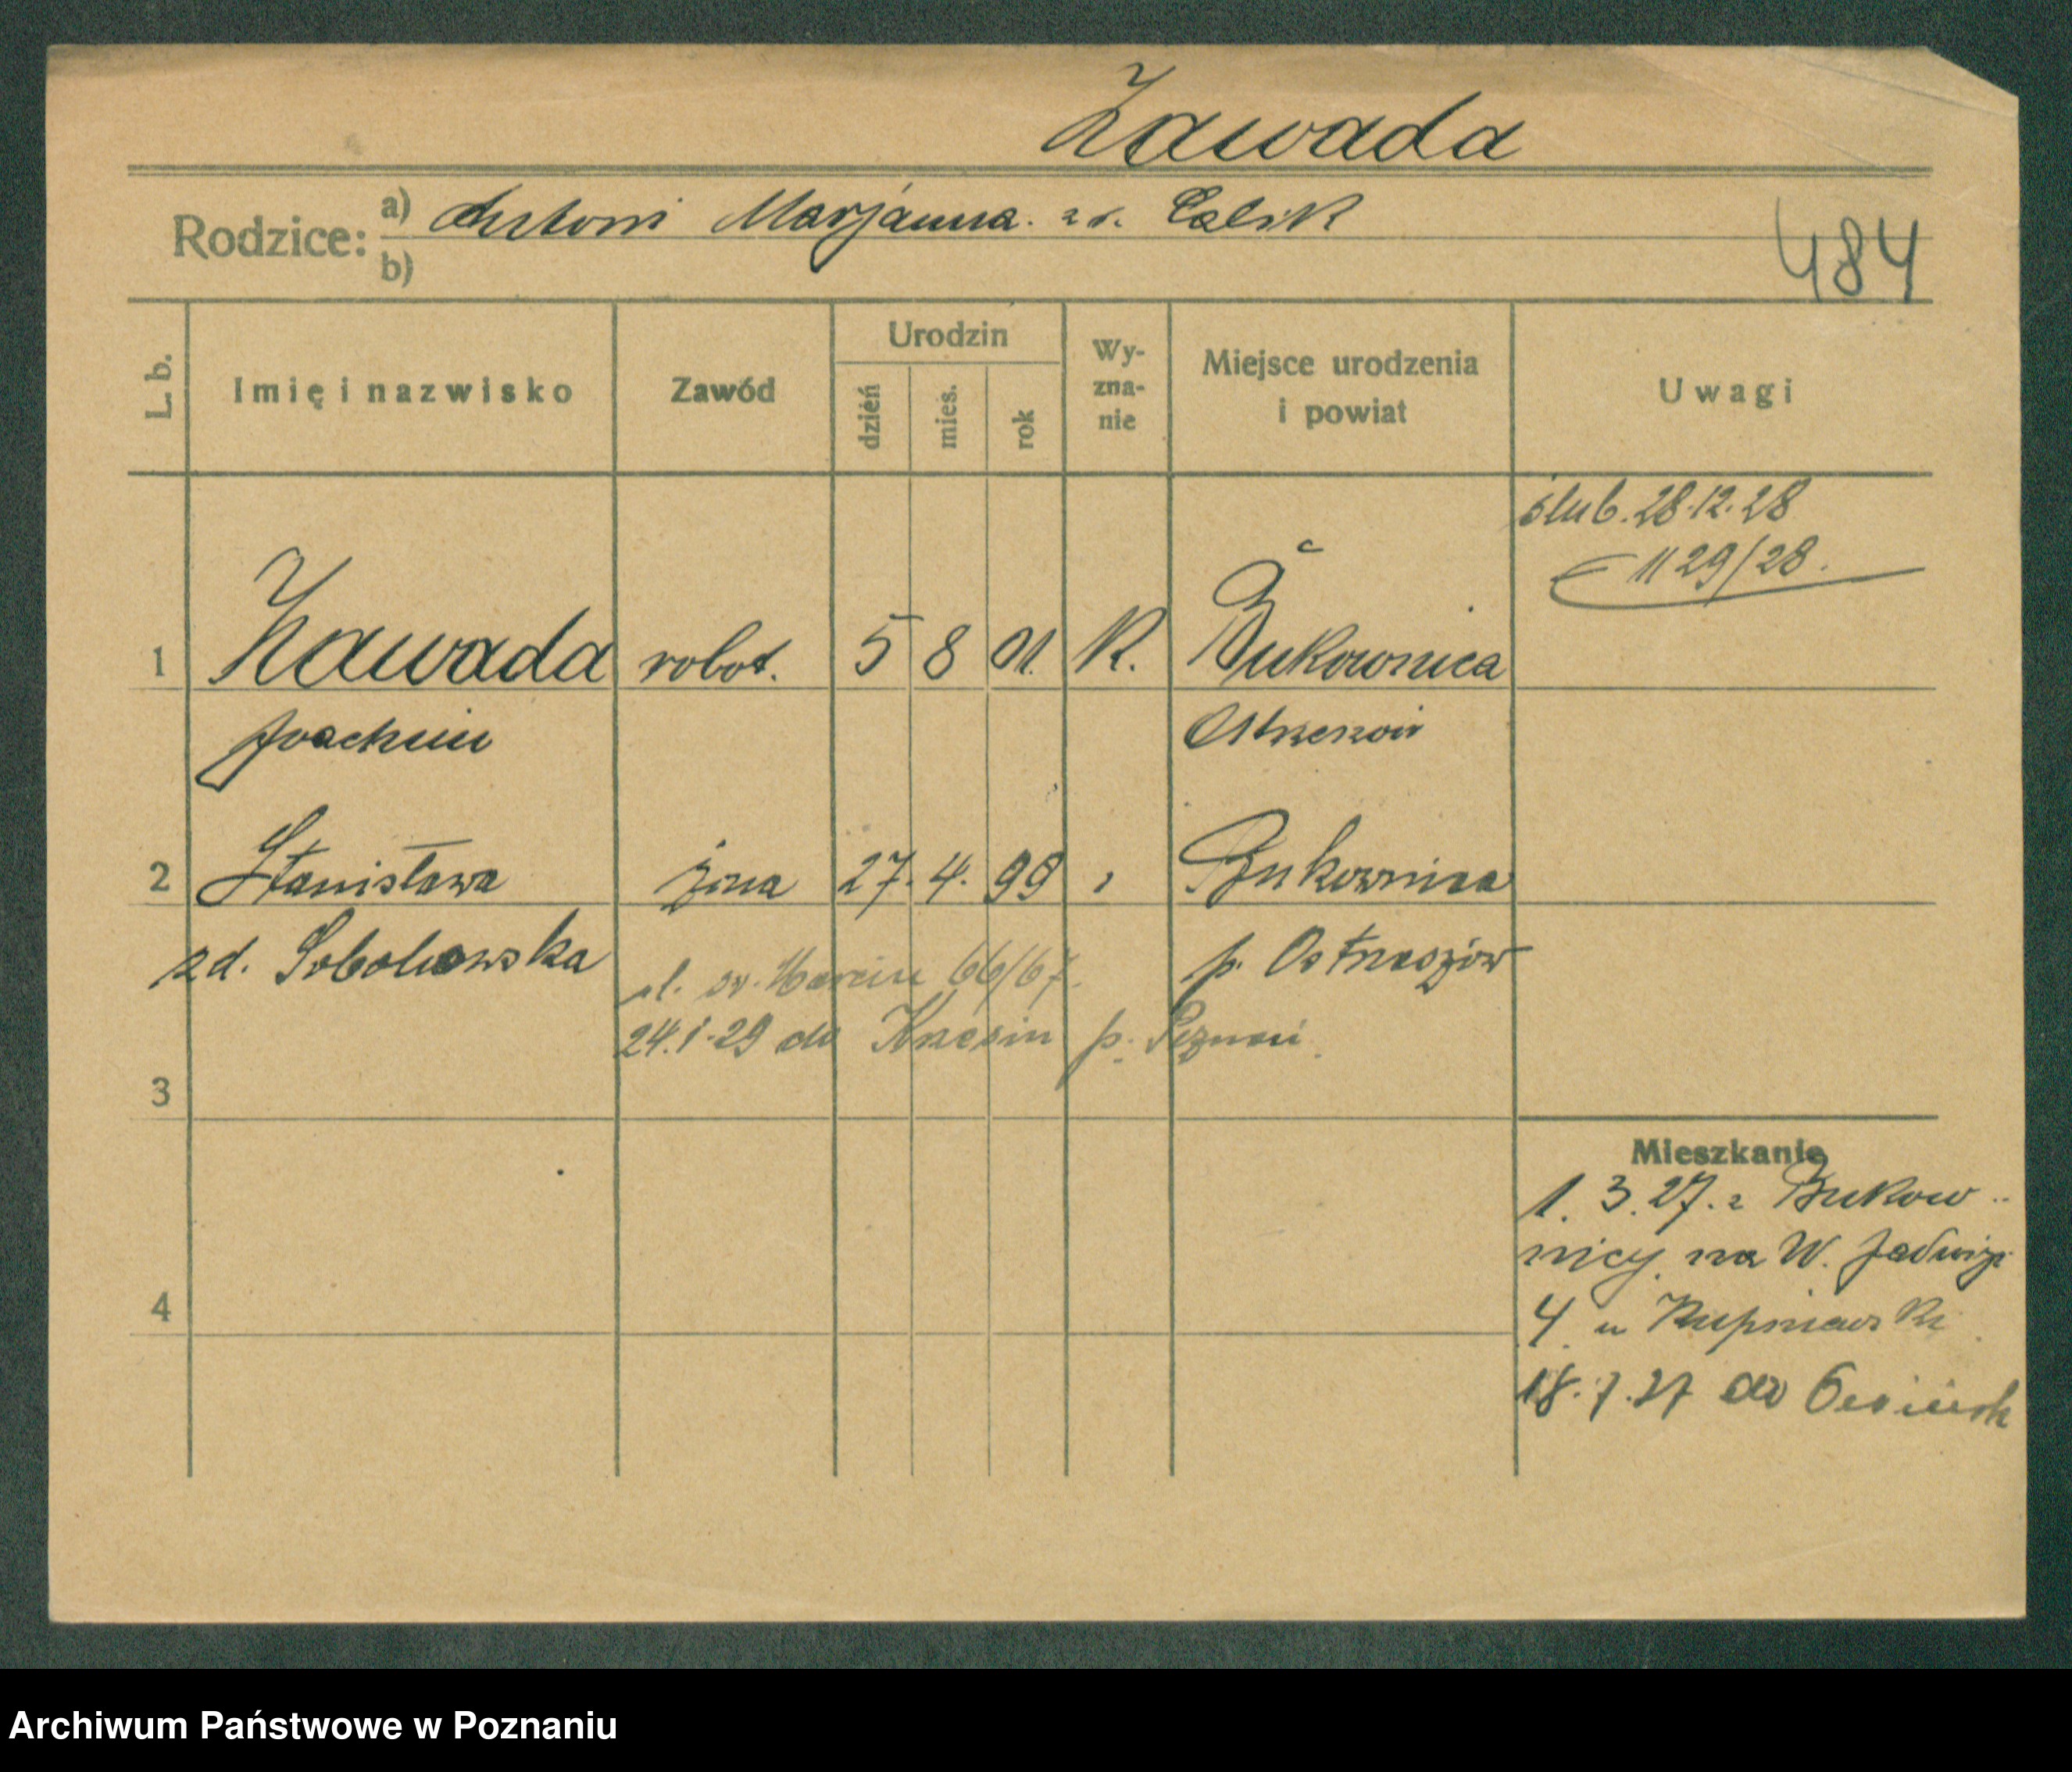 Zawada
Rodzice: a) Antoni Marjanna. zd. Calik
b)
484
L. b.
Imię i nazwisko
Zawód
Urodzin
dzień
mies.
rok
Wy-
zna-
nie
Miejsce urodzenia
i powiat
Uwagi
ślub. 28.12.28
1129/28.
1 Zawada robot. 5 8 01. K. Bukownica
Joachim
2 Stanisława żona 27. 4. 99 Bukownica
zd. p. Ostrzeszów
ul. św. Marcin 66/67.
24.1.29 do Krzesin p. Poznań
3
Mieszkanie
1. 3. 27. z Bukow-
nicy na W. Jadwigi
4
4 u
18. 7. 27 do
Archiwum Państwowe w Poznaniu